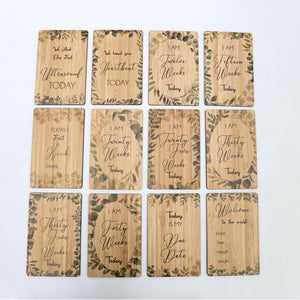 We Had
Our First
Ultrasound
TODAY
We heard your
Heartbeat
TODAY
I AM
Twelve
Weeks
Today
I AM
Fifteen
Weeks
Today
TODAY
I Felt
Kicks
I AM
Twenty
Weeks
Today
I AM
Twenty
Five
Weeks
Today
I AM
Thirty
Weeks
Today
I AM
Thirty
Five
Weeks
Today
I AM
Forty
Weeks
Today
Today
IS MY
Due
Date
Welcome
to the world
Date
Time
Weight
Length